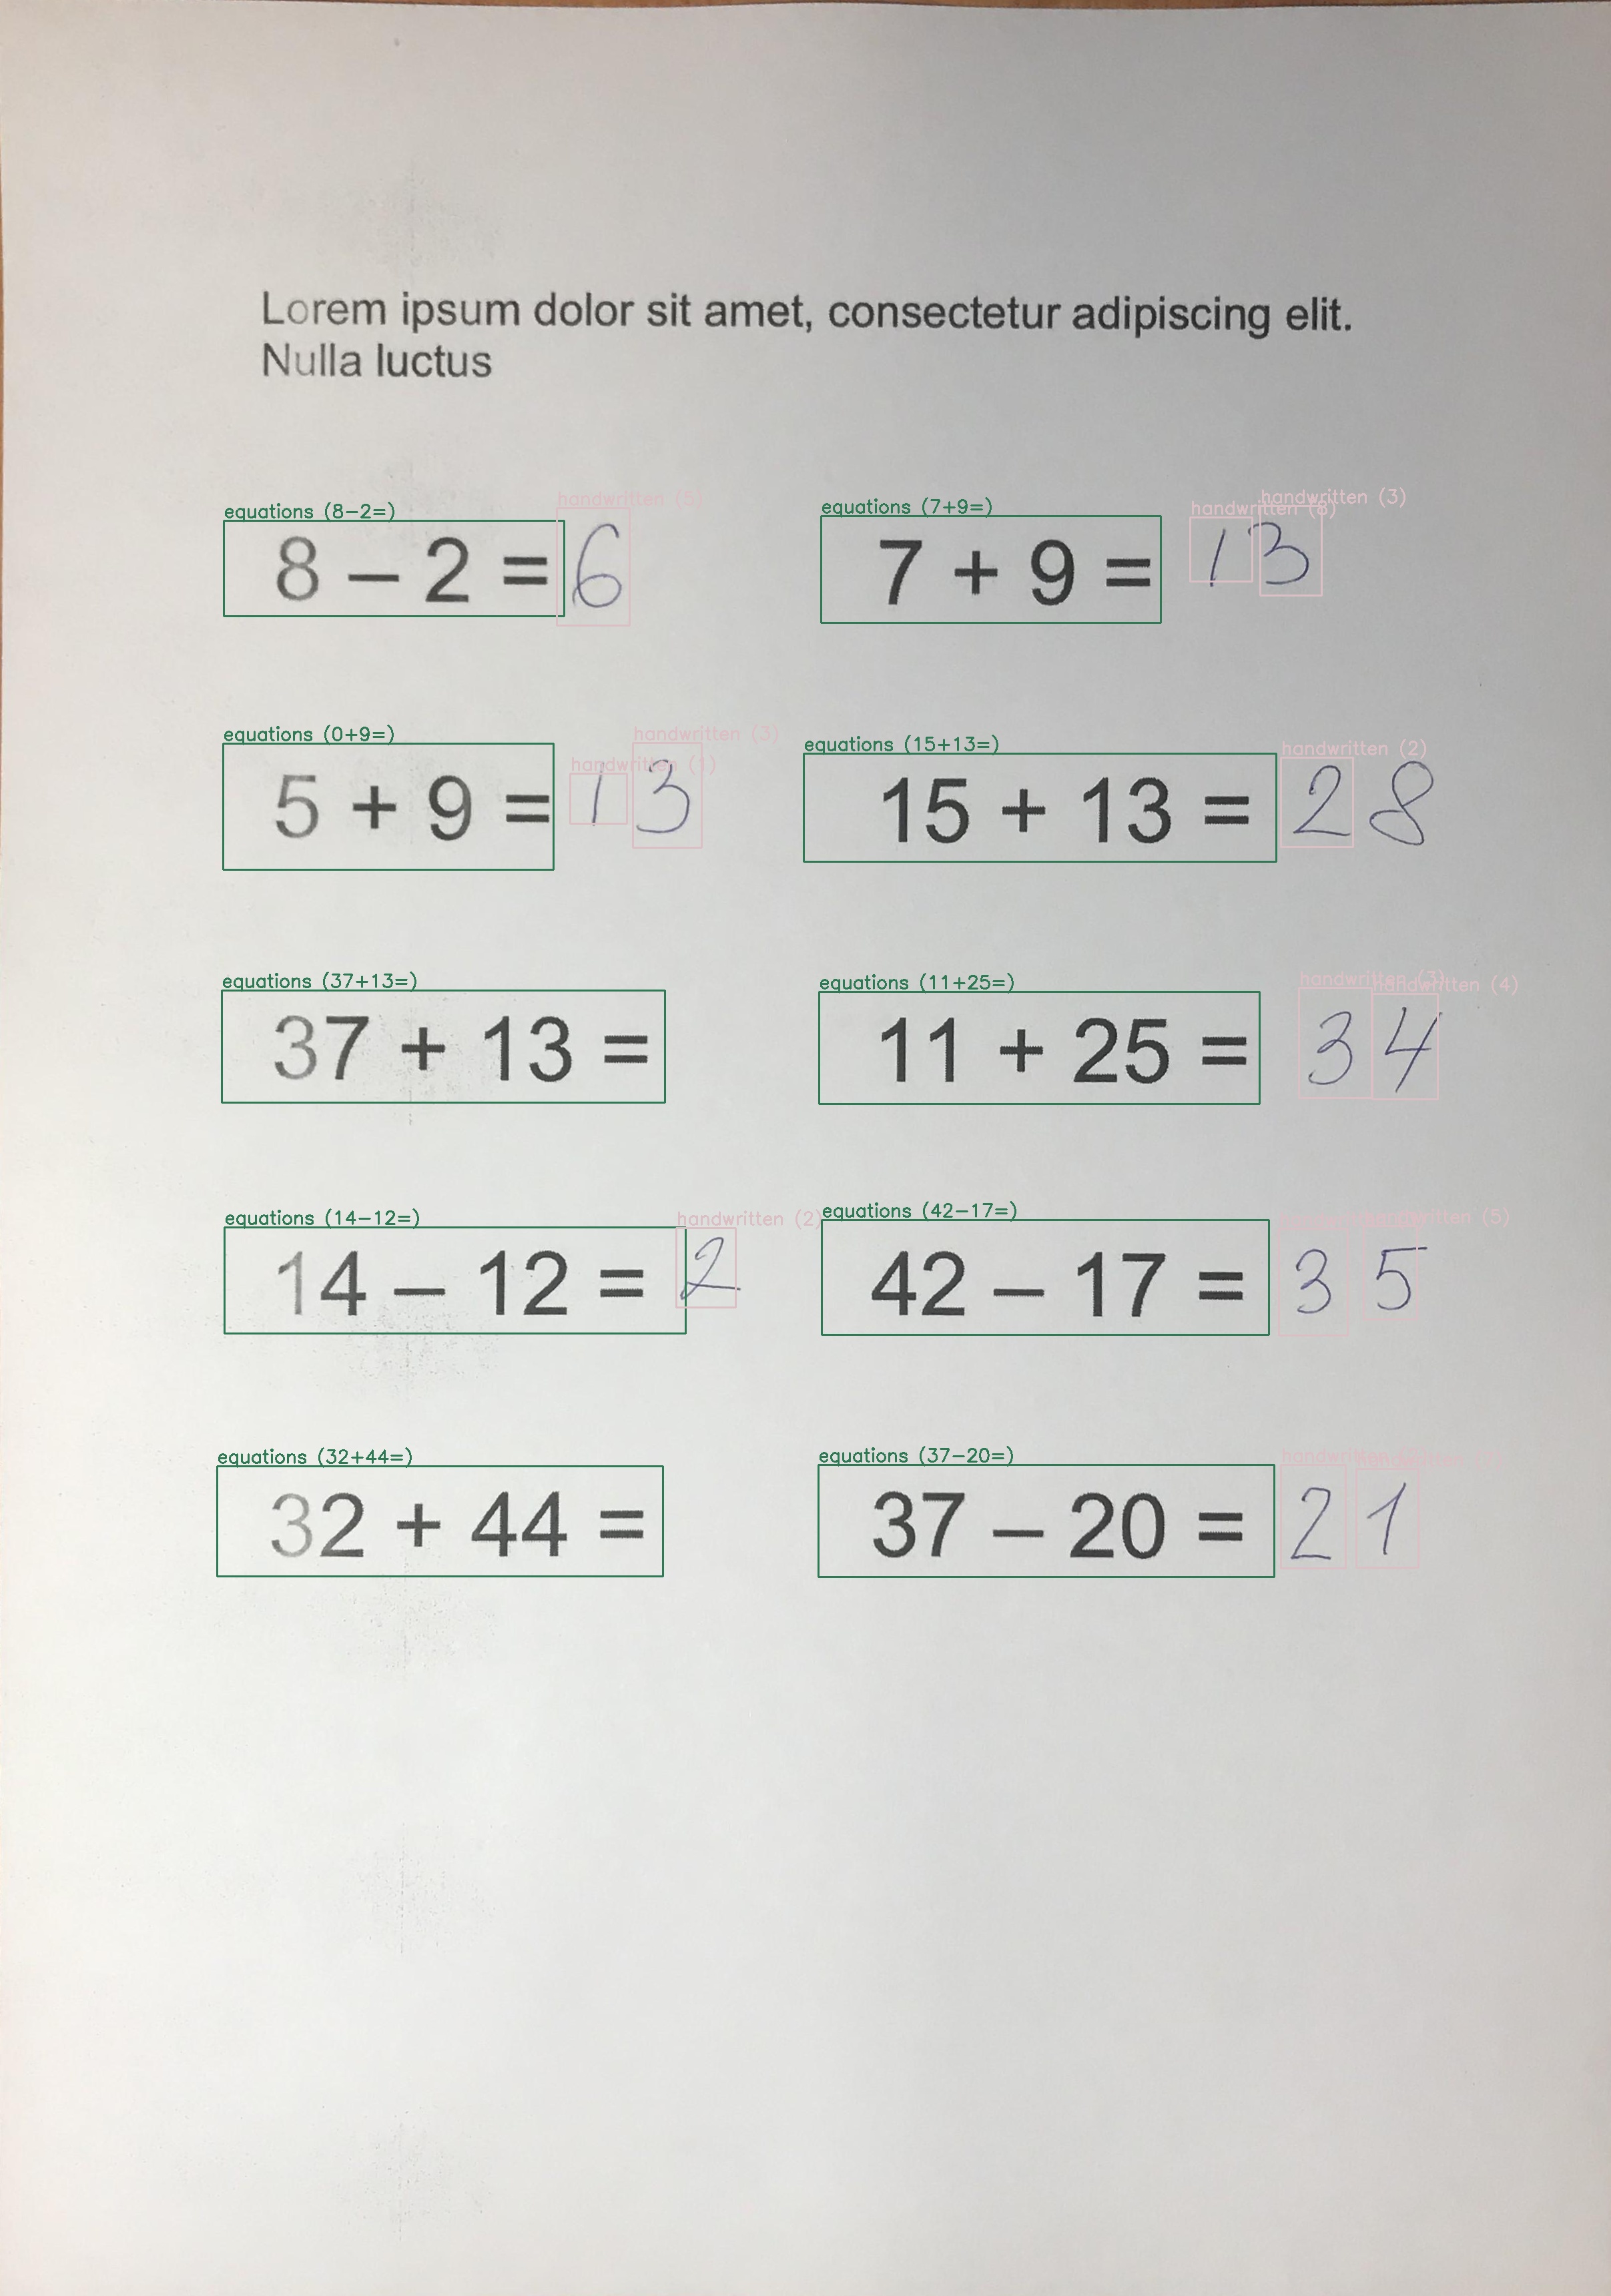 Lorem ipsum dolor sit amet, consectetur adipiscing elit.
Nulla luctus
equations (8-2=) handwritten (5) equations (7+9=) handwritten handwritten (3)
8 – 2 = 6 7 + 9 = 13
equations (0+9=) handwritten (1) handwritten (3) equations (15+13=) handwritten (2)
5 + 9 = 13 15 + 13 = 28
equations (37+13=) equations (11+25=) handwritten (3) handwritten (4)
37 + 13 = 11 + 25 = 34
equations (14-12=) handwritten (2) equations (42-17=) handwritten (5)
14 – 12 = 2 42 – 17 = 35
equations (32+44=) equations (37-20=) handwritten
32 + 44 = 37 – 20 = 21